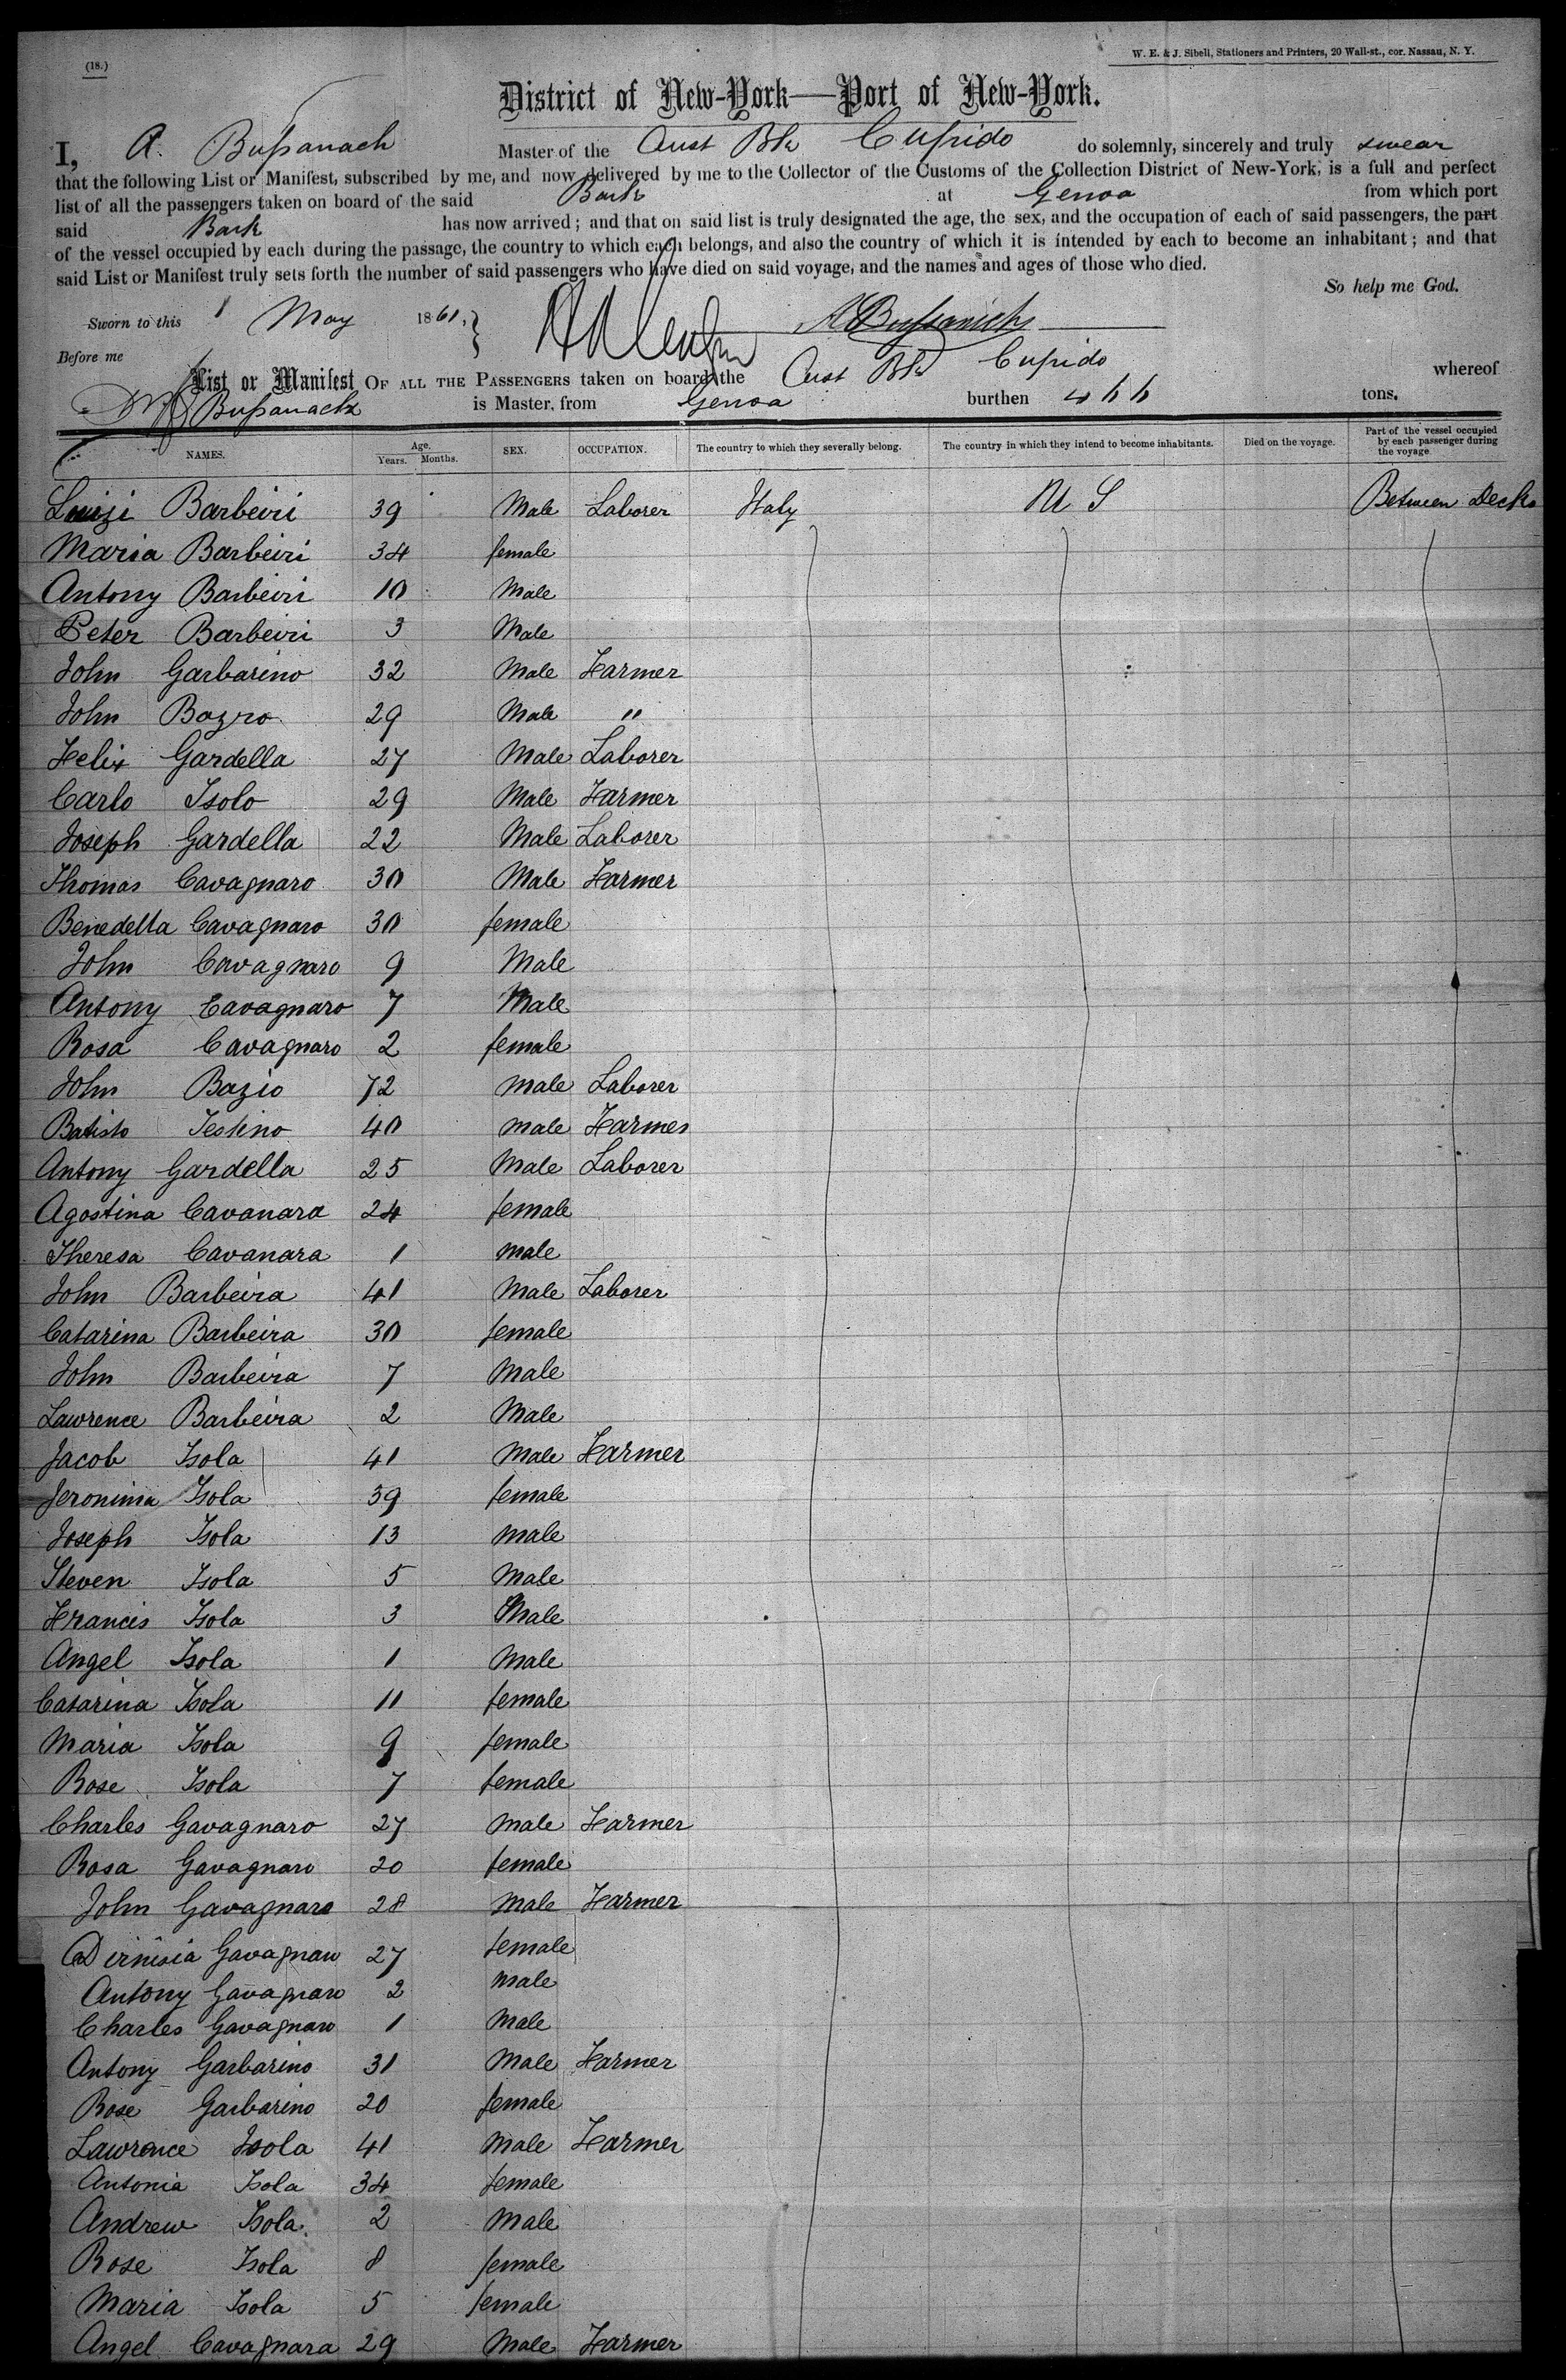 (18.)
W. E. & J. Sibell, Stationers and Printers, 20 Wall-st., cor. Nassau, N. Y.
District of New-York—Port of New-York.
I, A. Bussanach Master of the Aust Bk Cupido do solemnly, sincerely and truly swear
that the following List or Manifest, subscribed by me, and now delivered by me to the Collector of the Customs of the Collection District of New-York, is a full and perfect
list of all the passengers taken on board of the said Bark at Genoa from which port
said Bark has now arrived; and that on said list is truly designated the age, the sex, and the occupation of each of said passengers, the part
of the vessel occupied by each during the passage, the country to which each belongs, and also the country of which it is intended by each to become an inhabitant; and that
said List or Manifest truly sets forth the number of said passengers who have died on said voyage, and the names and ages of those who died.
So help me God.
Sworn to this 1 May 1861, A Bussanich
Before me
List or Manifest OF ALL THE PASSENGERS taken on board the Aust Bk Cupido whereof
Bussanach is Master, from Genoa burthen 466 tons.
NAMES. Age. Years. Months. SEX. OCCUPATION. The country to which they severally belong. The country in which they intend to become inhabitants. Died on the voyage. Part of the vessel occupied by each passenger during the voyage
Luizi Barbeiri 39 Male Laborer Italy U S Between Decks
Maria Barbeiri 34 female
Antony Barbeiri 10 Male
Peter Barbeiri 3 Male
John Garbarino 32 Male Farmer
John Bazro 29 Male "
Felix Gardella 27 Male Laborer
Carlo Isolo 29 Male Farmer
Joseph Gardella 22 Male Laborer
Thomas Cavagnaro 30 Male Farmer
Benedetta Cavagnaro 30 female
John Cavagnaro 9 Male
Antony Cavagnaro 7 Male
Rosa Cavagnaro 2 female
John Bazio 72 male Laborer
Batisto Testino 40 male Farmer
Antony Gardella 25 Male Laborer
Agostina Cavanara 24 female
Theresa Cavanara 1 male
John Barbeira 41 Male Laborer
Catarina Barbeira 30 female
John Barbeira 7 Male
Lawrence Barbeira 2 Male
Jacob Isola 41 Male Farmer
Jeronima Isola 39 female
Joseph Isola 13 male
Steven Isola 5 Male
Francis Isola 3 Male
Angel Isola 1 Male
Catarina Isola 11 female
Maria Isola 9 female
Rose Isola 7 female
Charles Gavagnaro 27 Male Farmer
Rosa Gavagnaro 20 female
John Gavagnaro 28 Male Farmer
Dirnisia Gavagnaro 27 female
Antony Gavagnaro 2 male
Charles Gavagnaro 1 Male
Antony Garbarino 31 Male Farmer
Rose Garbarino 20 female
Lawrence Isola 41 Male Farmer
Antonia Isola 34 female
Andrew Isola 2 Male
Rose Isola 8 female
Maria Isola 5 female
Angel Cavagnara 29 Male Farmer